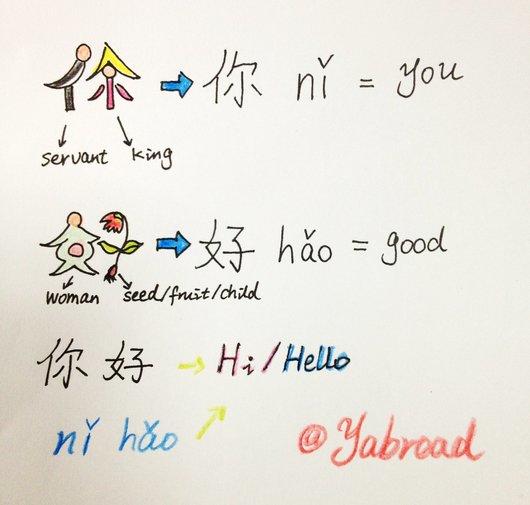 你 nǐ = you
servant king
好 hǎo = good
woman seed/fruit/child
你好 Hi/Hello
nǐ hǎo @Yabroad